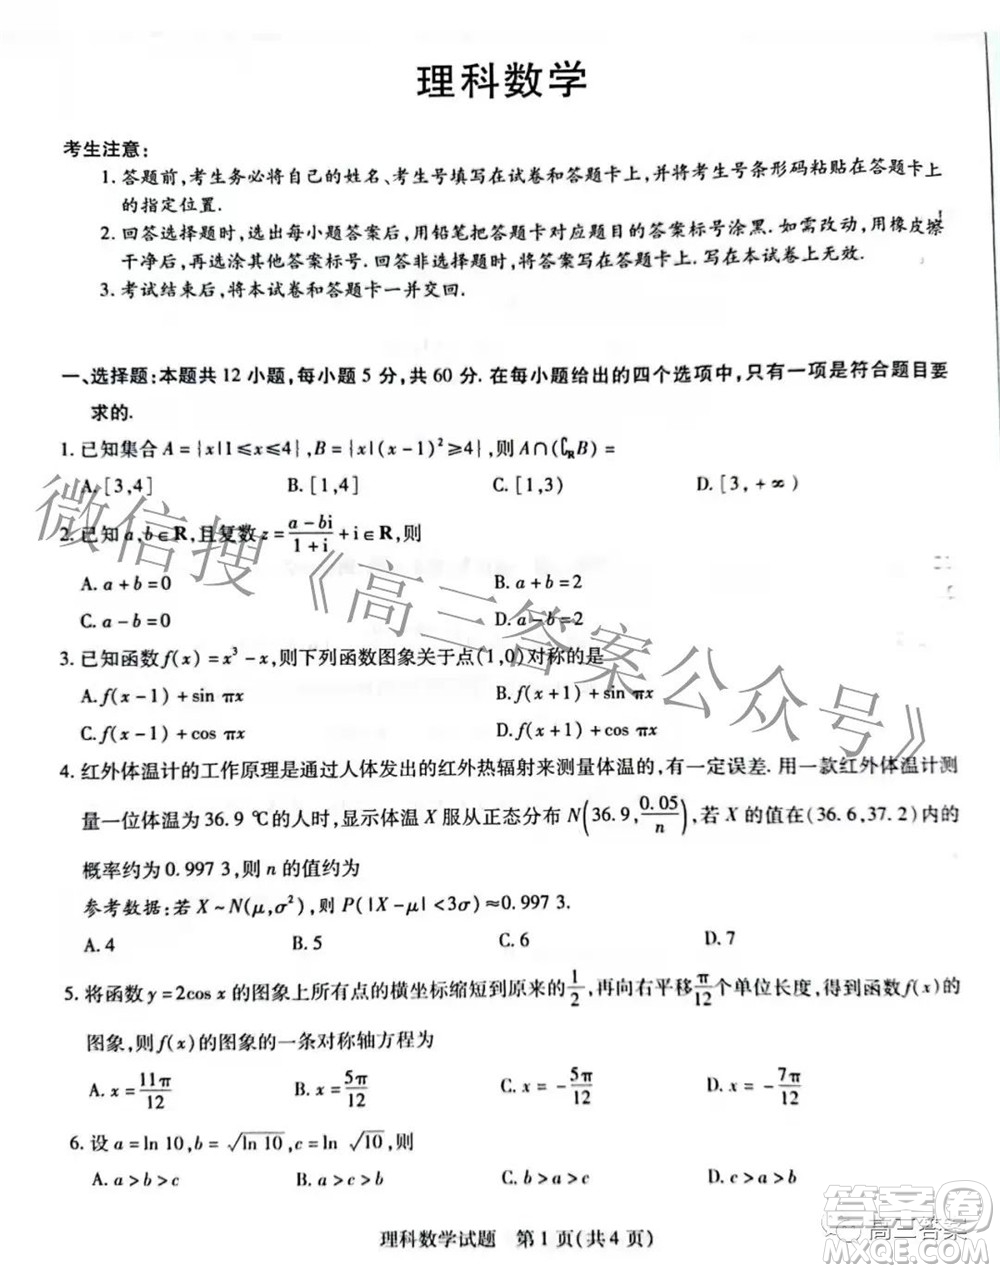 理科数学
考生注意:
1. 答题前,考生务必将自己的姓名、考生号填写在试卷和答题卡上,并将考生号条形码粘贴在答题卡上
的指定位置.
2. 回答选择题时,选出每小题答案后,用铅笔把答题卡对应题目的答案标号涂黑. 如需改动,用橡皮擦
干净后,再选涂其他答案标号. 回答非选择题时,将答案写在答题卡上. 写在本试卷上无效.
3. 考试结束后,将本试卷和答题卡一并交回.
一、选择题:本题共 12 小题,每小题 5 分,共 60 分. 在每小题给出的四个选项中,只有一项是符合题目要
求的.
1. 已知集合 A={x|1≤x≤4},B={x|(x-1)²≥4},则 A∩(∁RB)=
A. [3,4] B. [1,4] C. [1,3) D. [3,+∞)
2. 已知 a,b∈R,且复数 z=(a-bi)/(1+i)+i∈R,则
A. a+b=0 B. a+b=2
C. a-b=0 D. a-b=2
3. 已知函数 f(x)=x³-x,则下列函数图象关于点(1,0)对称的是
A. f(x-1)+sin πx B. f(x+1)+sin πx
C. f(x-1)+cos πx D. f(x+1)+cos πx
4. 红外体温计的工作原理是通过人体发出的红外热辐射来测量体温的,有一定误差. 用一款红外体温计测
量一位体温为 36.9 ℃的人时,显示体温 X 服从正态分布 N(36.9,0.05/n),若 X 的值在(36.6,37.2)内的
概率约为 0.997 3,则 n 的值约为
参考数据:若 X~N(μ,σ²),则 P(|X-μ|<3σ)≈0.997 3.
A. 4 B. 5 C. 6 D. 7
5. 将函数 y=2cos x 的图象上所有点的横坐标缩短到原来的1/2,再向右平移π/12个单位长度,得到函数 f(x)的
图象,则 f(x)的图象的一条对称轴方程为
A. x=11π/12 B. x=5π/12 C. x=-5π/12 D. x=-7π/12
6. 设 a=ln 10,b=√ln 10,c=ln √10,则
A. a>b>c B. a>c>b C. b>a>c D. c>a>b
理科数学试题 第 1 页(共 4 页)
微信搜《高三答案公众号》
高三答案
答案圈
MXQE.COM